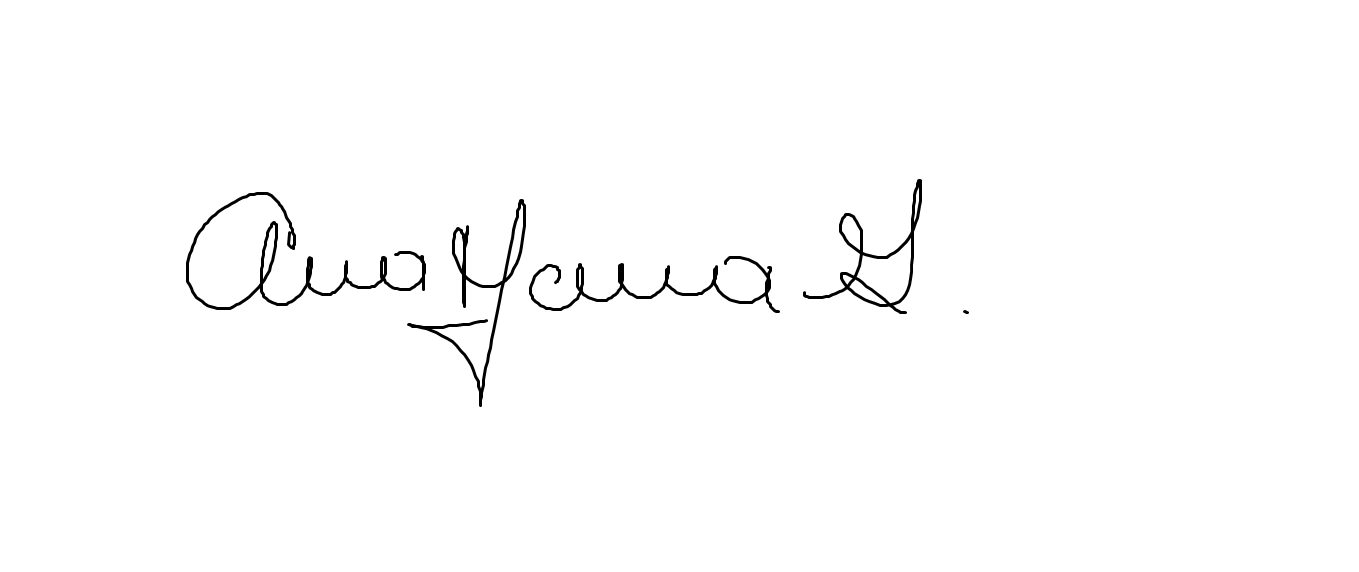 Ana Yama G.